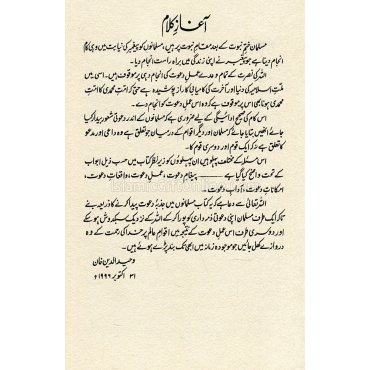 آغازِ کلام
مسلمان ختمِ نبوت کے بعد مقامِ نبوت پر ہیں، مسلمانوں کو پیغمبر کی نیابت میں وہی کام
انجام دینا ہے جو پیغمبر نے اپنی زندگی میں براہ راست انجام دیا۔
اللہ کی نصرت کے تمام وعدے عملِ دعوت کی انجام دہی پر موقوف ہیں۔ اسی میں
ملتِ اسلامیہ کی دنیا اور آخرت کی کامیابی کا راز پوشیدہ ہے حتیٰ کہ امتِ محمدی کا امتِ
محمدی ہونا بھی اس پر موقوف ہے کہ وہ اس عملِ دعوت کو انجام دے۔
اس کام کی صحیح ادائیگی کے لیے ضروری ہے کہ مسلمانوں کے اندر دعوتی شعور بیدار کیا
جائے انھیں بتایا جائے کہ مسلمان اور دیگر اقوام کے درمیان جو تعلق ہے وہ داعی اور مدعو
کا تعلق ہے نہ کہ ایک قوم اور دوسری قوم کا۔
اس مسئلہ کے مختلف پہلو ہیں ان پہلوؤں کو زیرِ نظر کتاب میں حسب ذیل ابواب
کے تحت واضح کیا گیا ہے ــــــ پیغامِ دعوت، عملِ دعوت، واقعاتِ دعوت،
امکاناتِ دعوت، آدابِ دعوت۔
اللہ تعالیٰ سے دعا ہے کہ یہ کتاب مسلمانوں میں جذبۂ دعوت پیدا کرنے کا ذریعہ بنے
تاکہ ایک طرف مسلمان اپنی دعوتی ذمہ داری کو پورا کر کے اللہ کے نزدیک سبکدوش ہو سکے
اور دوسری طرف اس عملِ دعوت کے نتیجہ میں اقوامِ عالم پر خدا کی رحمت کے وہ
دروازے کھل جائیں جو موجودہ زمانہ میں ابھی تک بند پڑے ہوئے ہیں۔
وحید الدین خاں
۳۱ اکتوبر ۱۹۹۶ء